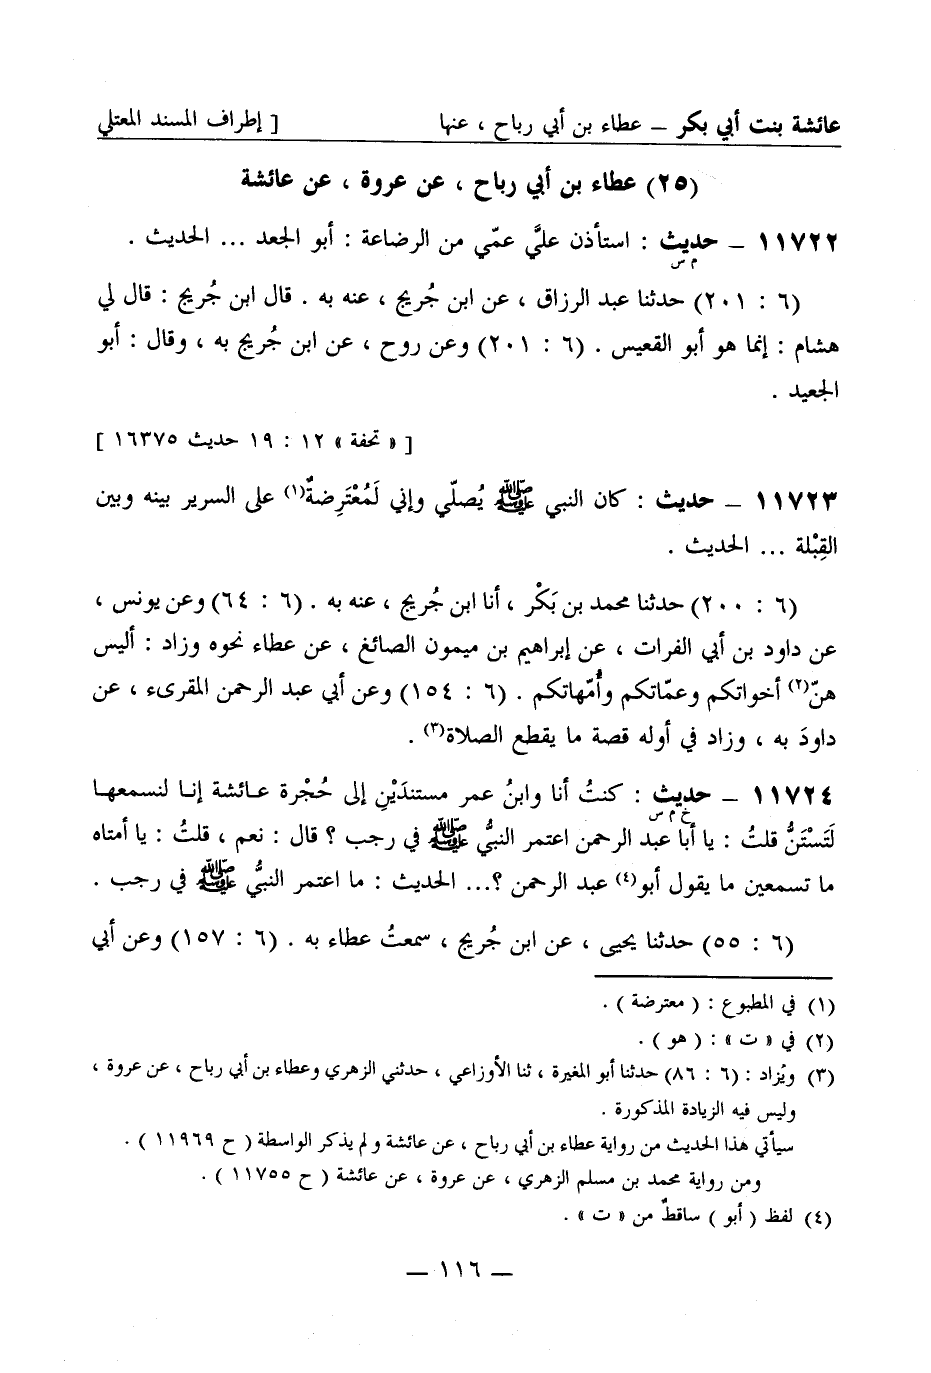 عائشة بنت أبي بكر – عطاء بن أبي رباح ، عنها [ إطراف المسند المعتلي
(٢٥) عطاء بن أبي رباح ، عن عروة ، عن عائشة
١١٧٢٢ – حديث : استأذن عليَّ عمّي من الرضاعة : أبو الجعد ... الحديث .
م س
(٦ : ٢٠١) حدثنا عبد الرزاق ، عن ابن جُريج ، عنه به . قال ابن جُريج : قال لي
هشام : إنما هو أبو القعيس . (٦ : ٢٠١) وعن روح ، عن ابن جُريج به ، وقال : أبو
الجعيد .
[ « تحفة » ١٢ : ١٩ حديث ١٦٣٧٥ ]
١١٧٢٣ – حديث : كان النبي ﷺ يُصلّي وإني لَمُعْتَرِضةٌ(١) على السرير بينه وبين
القِبْلة ... الحديث .
(٦ : ٢٠٠) حدثنا محمد بن بَكْر ، أنا ابن جُريج ، عنه به . (٦ : ٦٤) وعن يونس ،
عن داود بن أبي الفرات ، عن إبراهيم بن ميمون الصائغ ، عن عطاء نحوه وزاد : أليس
هنّ(٢) أخواتكم وعمّاتكم وأُمّهاتكم . (٦ : ١٥٤) وعن أبي عبد الرحمن المقرىء ، عن
داودَ به ، وزاد في أوله قصة ما يقطع الصلاة(٣) .
١١٧٢٤ – حديث : كنتُ أنا وابنُ عمر مستندَيْنِ إلى حُجْرة عائشة إنا لنسمعها
خ م س
لَتَسْتَنُّ قلتُ : يا أبا عبد الرحمن اعتمر النبيُّ ﷺ في رجب ؟ قال : نعم ، قلتُ : يا أمتاه
ما تسمعين ما يقول أبو(٤) عبد الرحمن ؟... الحديث : ما اعتمر النبيُّ ﷺ في رجب .
(٦ : ٥٥) حدثنا يحيى ، عن ابن جُريج ، سمعتُ عطاء به . (٦ : ١٥٧) وعن أبي
(١) في المطبوع : ( معترضة ) .
(٢) في « ت » : ( هو ) .
(٣) ويُزاد : (٦ : ٨٦) حدثنا أبو المغيرة ، ثنا الأوزاعي ، حدثني الزهري وعطاء بن أبي رباح ، عن عروة ،
وليس فيه الزيادة المذكورة .
سيأتي هذا الحديث من رواية عطاء بن أبي رباح ، عن عائشة ولم يذكر الواسطة ( ح ١١٩٦٩ ) .
ومن رواية محمد بن مسلم الزهري ، عن عروة ، عن عائشة ( ح ١١٧٥٥ ) .
(٤) لفظ ( أبو ) ساقطٌ من « ت » .
– ١١٦ –